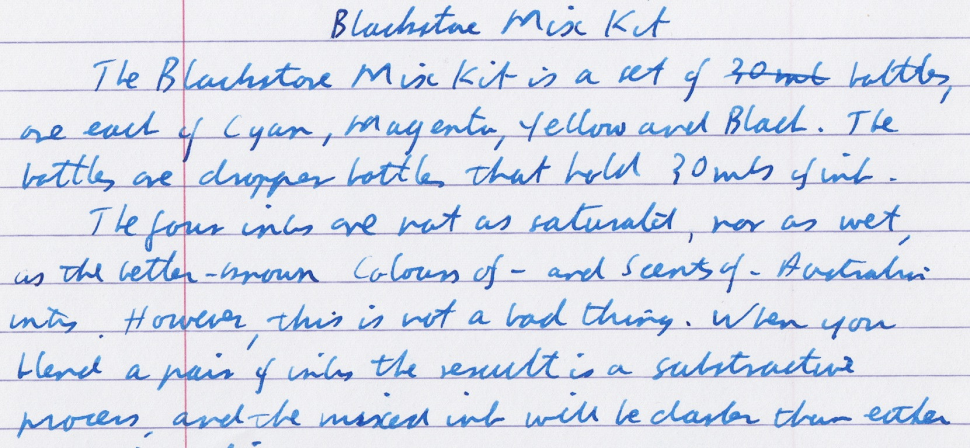 Blackstone Mix Kit
The Blackstone Mix Kit is a set of 30ml bottles,
one each of Cyan, Magenta, Yellow and Black. The
bottles are dropper bottles that hold 30mls of ink.
The four inks are not as saturated, nor as wet,
as the better-known Colours of- and Scents of- Australia
inks. However, this is not a bad thing. When you
blend a pair of inks the result is a substractive
process, and the mixed ink will be darker than either